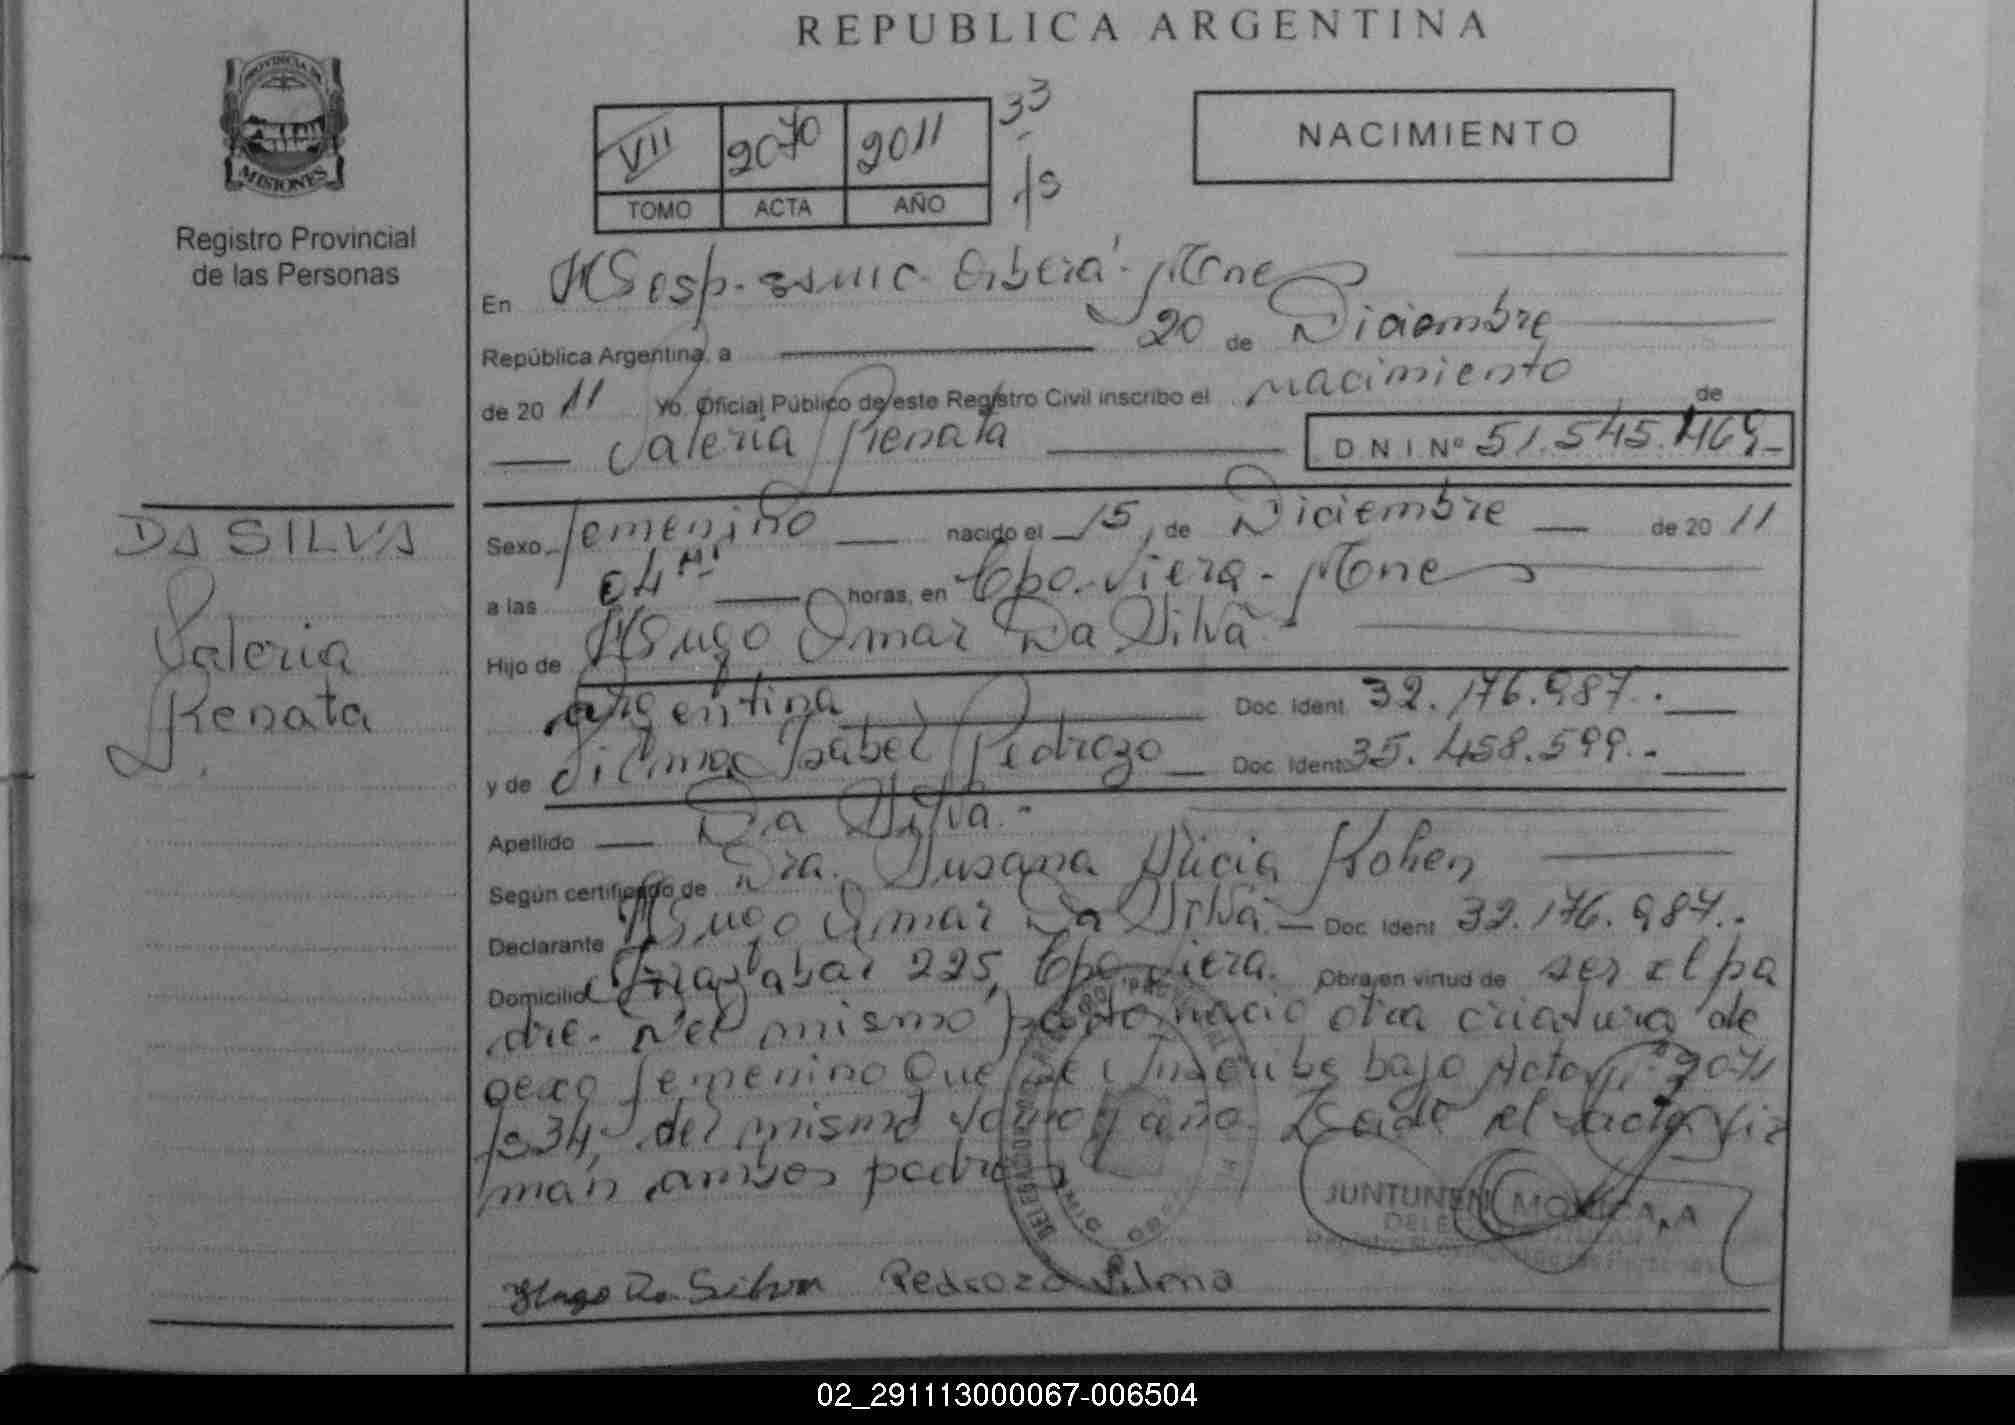 REPUBLICA ARGENTINA
PROVINCIA DE
MISIONES
Registro Provincial
de las Personas
VII 2070 2011 33
TOMO ACTA AÑO fs
NACIMIENTO
En Hosp. Oberá - Mnes
República Argentina, a 20 de Diciembre
de 20 11 Yo, Oficial Público de este Registro Civil inscribo el nacimiento de
Valeria Renata
D N I Nº 51.545.469.-
DA SILVA
Valeria
Renata
Sexo femenino nacido el 15, de Diciembre de 20 11
a las 04 horas, en Cpo. Viera - Mnes
Hijo de Hugo Omar Da Silva.-
argentina Doc. Ident. 32.176.987.-
y de Silma Isabel Pedrozo Doc. Ident. 35.458.599.-
Apellido Da Silva.-
Según certificado de Dra. Susana Alicia Kohen
Declarante Hugo Omar Da Silva - Doc. Ident. 32.176.987.-
Domicilio 225, Cpo. Viera. Obra en virtud de ser el pa
dre. del mismo parto nació otra criatura de
sexo femenino que se inscribe bajo Acta nº 2071
fs 34, del mismo tomo y año. Leído el acta fir
man ambos padres
JUNTUNEN MONICA A
Hugo Da Silva Pedrozo Silma
02_291113000067-006504